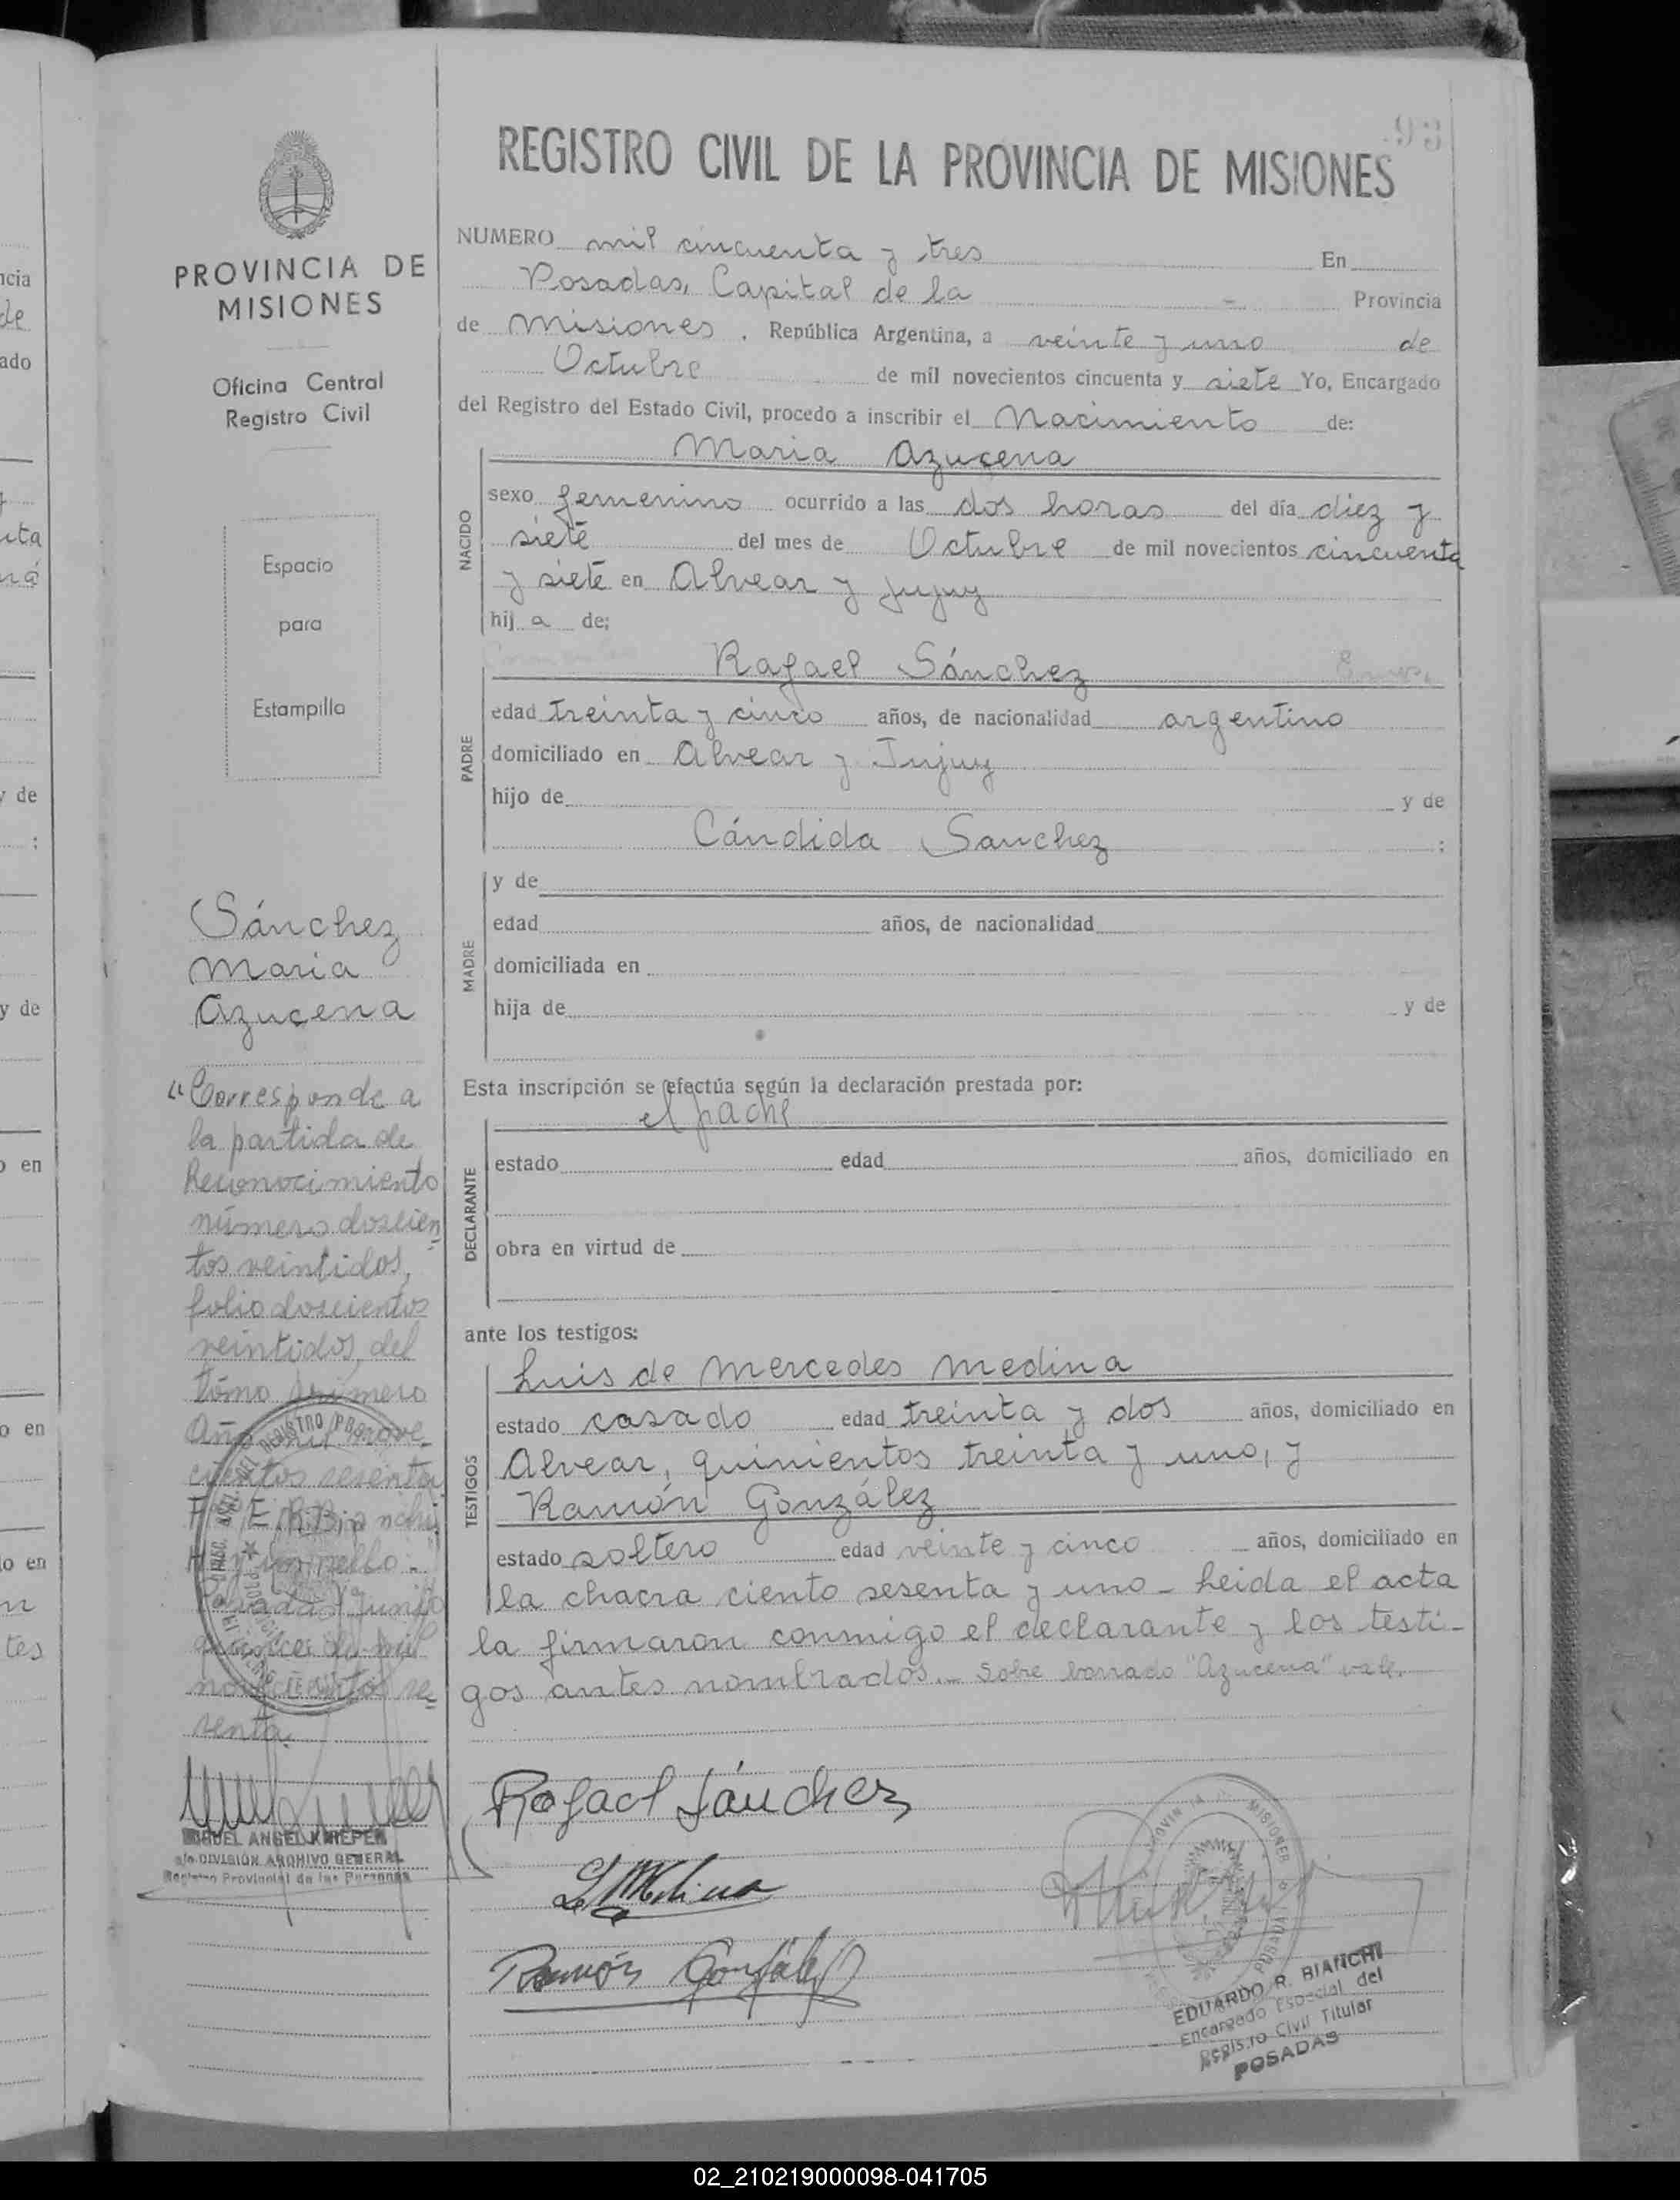 93
REGISTRO CIVIL DE LA PROVINCIA DE MISIONES
PROVINCIA DE
MISIONES
Oficina Central
Registro Civil
Espacio
para
Estampilla
Sánchez
Maria
Azucena
"Corresponde a
la partida de
Reconocimiento
número doscien
tos veintidos,
folio doscientos
veintidos, del
tomo primero
Año mil nove
cientos sesenta
E. R. Bianchi
Posadas, Junio
quince de mil
novecientos se
senta.
MIGUEL ANGEL KNEPER
a/c DIVISIÓN ARCHIVO GENERAL
Registro Provincial de las Personas
NUMERO mil cincuenta y tres En
Posadas, Capital de la Provincia
de Misiones, República Argentina, a veinte y uno de
Octubre de mil novecientos cincuenta y siete Yo, Encargado
del Registro del Estado Civil, procedo a inscribir el Nacimiento de:
NACIDO
Maria Azucena
sexo femenino ocurrido a las dos horas del día diez y
siete del mes de Octubre de mil novecientos cincuenta
y siete en Alvear y Jujuy
hij a de;
PADRE
Rafael Sánchez
edad treinta y cinco años, de nacionalidad argentino
domiciliado en Alvear y Jujuy
hijo de y de
Cándida Sanchez ;
MADRE
y de
edad años, de nacionalidad
domiciliada en
hija de y de
Esta inscripción se efectúa según la declaración prestada por:
DECLARANTE
el padre
estado edad años, domiciliado en
obra en virtud de
ante los testigos:
TESTIGOS
Luis de Mercedes Medina
estado casado edad treinta y dos años, domiciliado en
Alvear, quinientos treinta y uno, y
Ramón González
estado soltero edad veinte y cinco años, domiciliado en
la chacra ciento sesenta y uno - Leida el acta
la firmaron conmigo el declarante y los testi-
gos antes nombrados.- Sobre borrado "Azucena" vale.
Rafael Sánchez
L M Medina
Ramón González
EDUARDO R. BIANCHI
Encargado Especial del
Registro Civil Titular
POSADAS
02_210219000098-041705